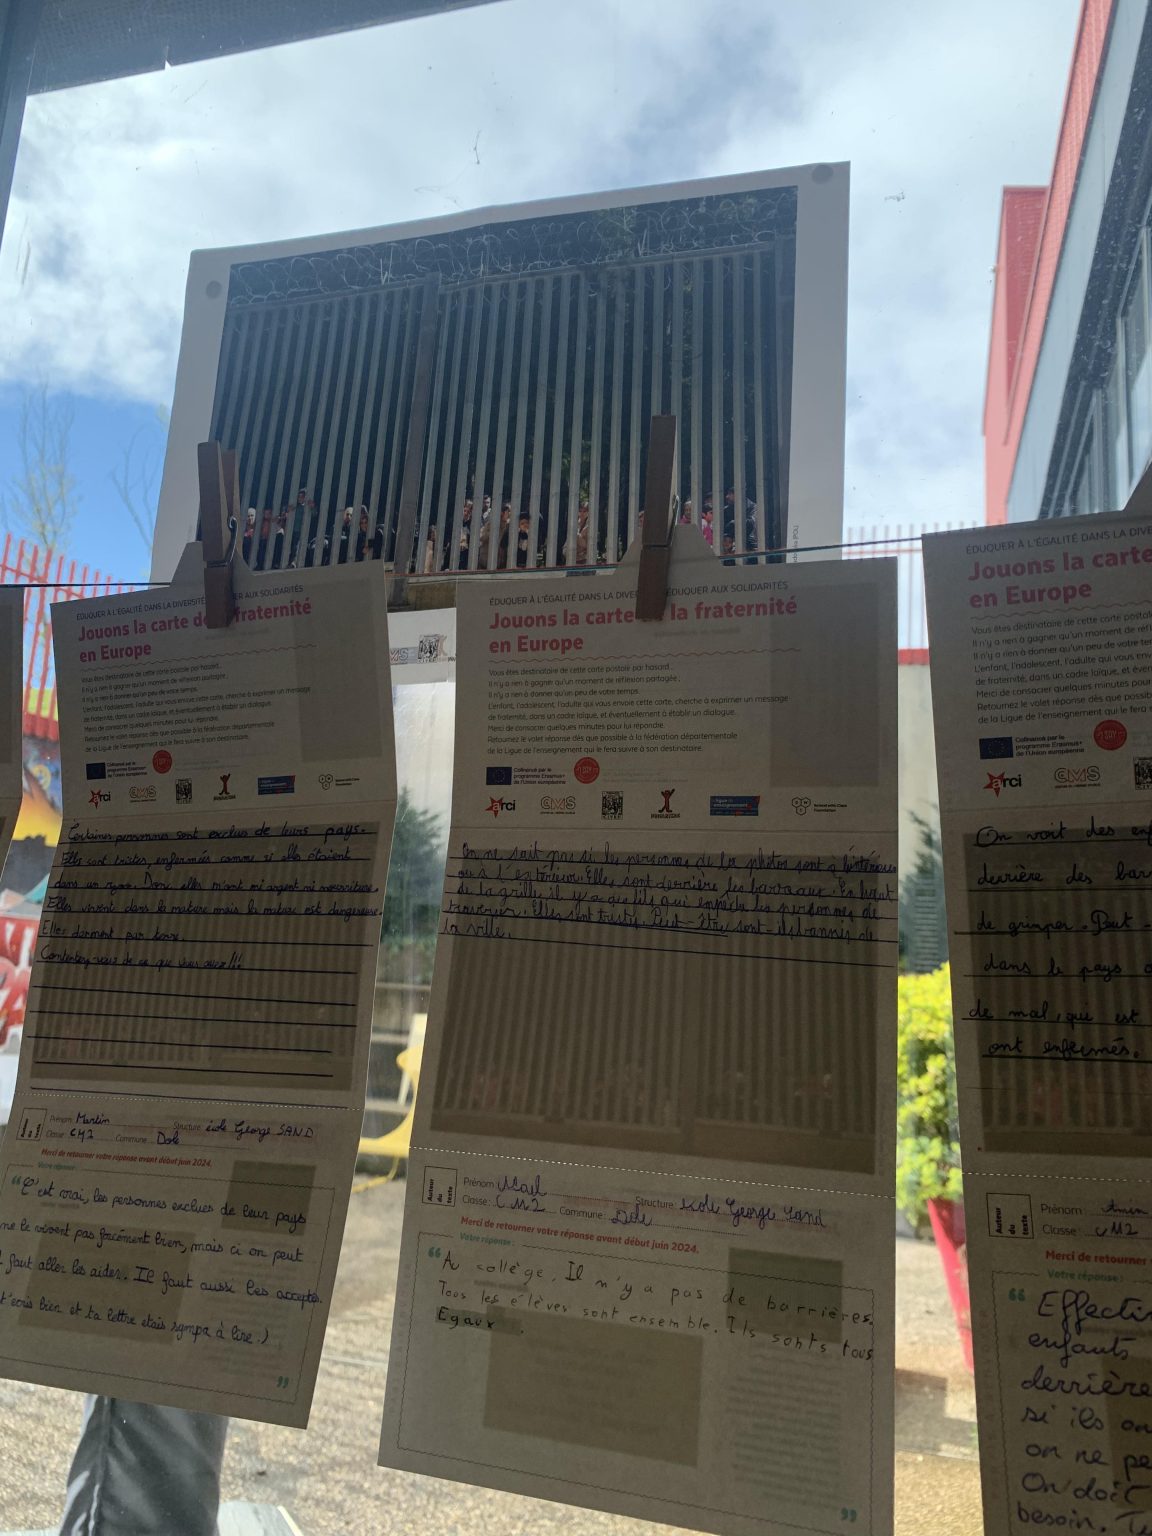 ÉDUQUER À L'ÉGALITÉ DANS LA DIVERSITÉ ER AUX SOLIDARITÉS
Jouons la carte de fraternité
en Europe
Vous êtes destinataire de cette carte postale par hasard.
Il n'y a rien à gagner qu'un moment de réflexion partagée;
Il n'y a rien à donner qu'un peu de votre temps.
L'enfant, l'adolescent, l'adulte qui vous envoie cette carte, cherche à exprimer un message
de fraternité, dans un cadre laïque, et éventuellement à établir un dialogue.
Merci de consacrer quelques minutes pour lui répondre.
Retournez le volet réponse dès que possible à la fédération départementale
de la Ligue de l'enseignement qui le fera suivre à son destinataire.
Cofinancé par le
programme Erasmus+
de l'Union européenne
arci
CMS
Certaines personnes sont exclus de leurs pays.
Elles sont tristes, enfermées comme si elles étaient
dans un Donc elles n'ont ni argent ni nourriture.
Elles vivent dans la nature mais la nature est dangereuse.
Elles dorment par terre.
Contentez-vous de ce que vous avez!!!
Auteur du texte
Prénom Martin Structure école George SAND
Classe: CM2 Commune Dole
Merci de retourner votre réponse avant début juin 2024.
Votre réponse:
"C'est vrai, les personnes exclues de leur pays
ne le vivent pas forcément bien, mais ci on peut
faut aller les aider. Il faut aussi les accepte.
t'écris bien et ta lettre etais sympa à lire :)
ÉDUQUER À L'ÉGALITÉ DANS LA DIVER ÉDUQUER AUX SOLIDARITÉS
Jouons la carte la fraternité
en Europe
Vous êtes destinataire de cette carte postale par hasard.
Il n'y a rien à gagner qu'un moment de réflexion partagée;
Il n'y a rien à donner qu'un peu de votre temps.
L'enfant, l'adolescent, l'adulte qui vous envoie cette carte, cherche à exprimer un message
de fraternité, dans un cadre laïque, et éventuellement à établir un dialogue.
Merci de consacrer quelques minutes pour lui répondre.
Retournez le volet réponse dès que possible à la fédération départementale
de la Ligue de l'enseignement qui le fera suivre à son destinataire.
Cofinancé par le
programme Erasmus+
de l'Union européenne
arci
CMS
On ne sait pas si les personnes de la photos sont à
ou à l'extérieur. Elles sont derrière les barreaux. En haut
de la grille il y a des fils qui empêche les personnes de
traverser. Elles sont tristes. Peut-être sont-ils bannis de
la ville.
Auteur du texte
Prénom Structure école George Sand
Classe: CM2 Commune: Dole
Merci de retourner votre réponse avant début juin 2024.
Votre réponse:
"Au collège, Il n'y a pas de barrières.
Tous les élèves sont ensemble. Ils sonts tous
Egaux.
ÉDUQUER À L'ÉGALITÉ DANS LA DIVER
Jouons la carte
en Europe
Vous êtes destinataire de cette carte postale par
Il n'y a rien à gagner qu'un moment de réfl
Il n'y a rien à donner qu'un peu de votre te
L'enfant, l'adolescent, l'adulte qui vous env
de fraternité, dans un cadre laïque, et éven
Merci de consacrer quelques minutes pour
Retournez le volet réponse dès que possib
de la Ligue de l'enseignement qui le fera s
Cofinancé par le
programme Erasmus+
de l'Union européenne
arci
CMS
On voit des enf
derrière des bar
de grimper. Peut-
dans le pays
de mal, qui est
ont enfermés.
Auteur du texte
Prénom
Classe: CM2
Merci de retourner
Votre réponse:
"Effectiv
enfants
derrière
si ils on
on ne pe
On doit
besoin.